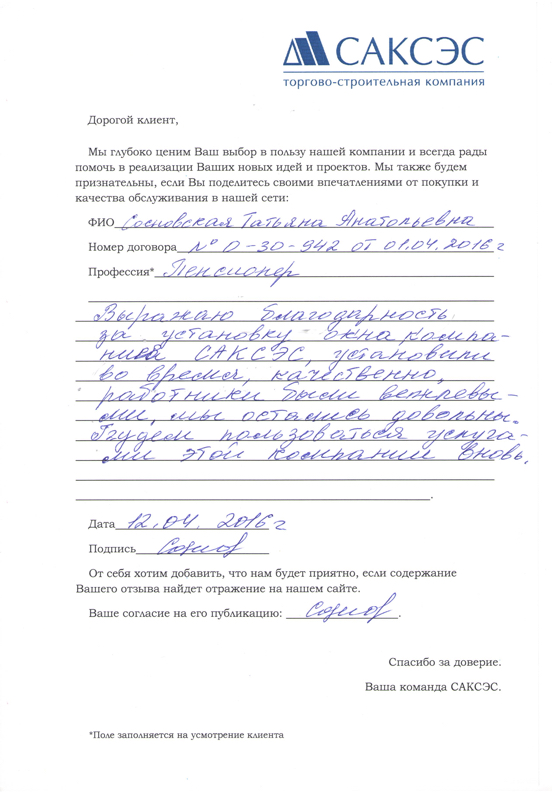 САКСЭС
торгово-строительная компания
Дорогой клиент,
Мы глубоко ценим Ваш выбор в пользу нашей компании и всегда рады
помочь в реализации Ваших новых идей и проектов. Мы также будем
признательны, если Вы поделитесь своими впечатлениями от покупки и
качества обслуживания в нашей сети:
ФИО Сосновская Татьяна Анатольевна
Номер договора № О-30-942 от 01.04.2016 г
Профессия* Пенсионер
Выражаю благодарность
за установку окна компа-
нией САКСЭС, установили
во время, качественно,
работники были вежливы-
ми, мы остались довольны.
Будем пользоваться услуга-
ми этой компании вновь.
Дата 12.04. 2016 г
Подпись
От себя хотим добавить, что нам будет приятно, если содержание
Вашего отзыва найдет отражение на нашем сайте.
Ваше согласие на его публикацию:
Спасибо за доверие.
Ваша команда САКСЭС.
*Поле заполняется на усмотрение клиента